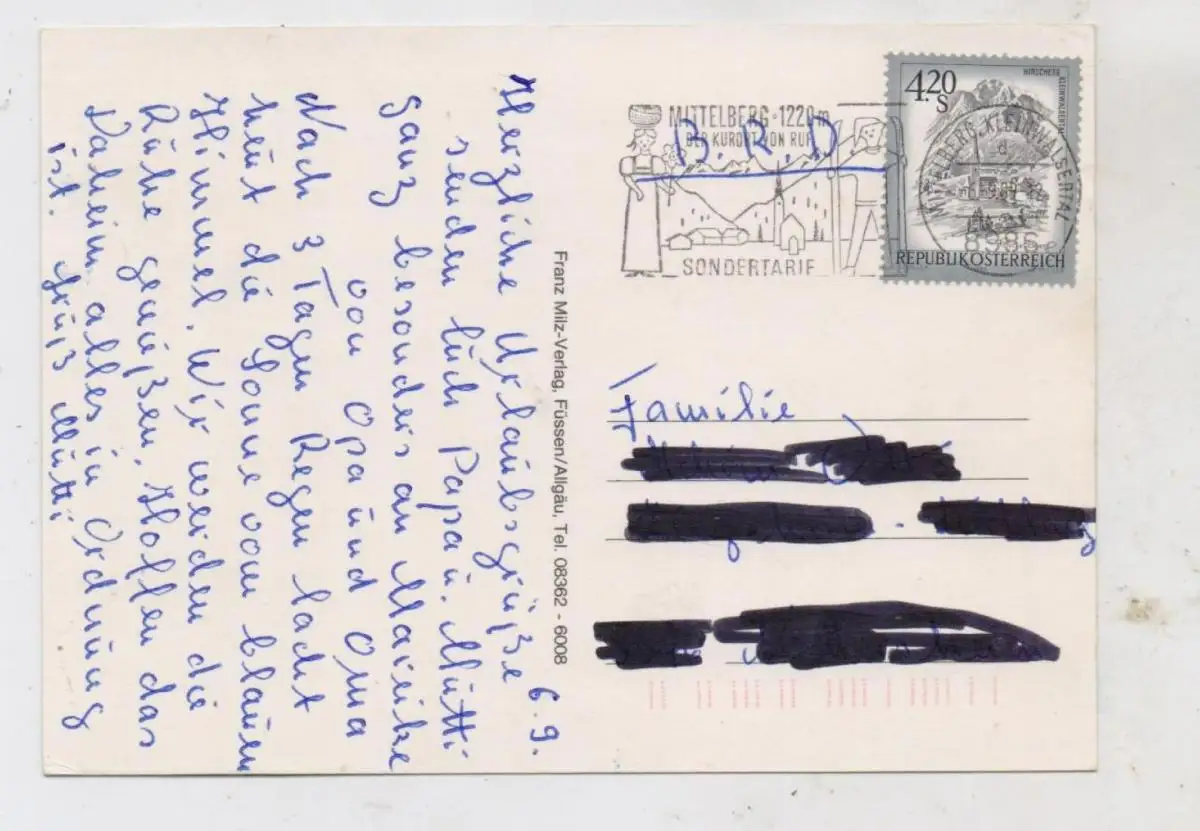 6.9.
Herzliche Urlaubsgrüße
senden Euch Papa u. Mutti
ganz besonders an Mareike
von Opa und Oma
Nach 3 Tagen Regen lacht
heut die Sonne vom blauen
Himmel. Wir werden die
Ruhe genießen. Hoffen das
Daheim alles in Ordnung
ist. Gruß Mutti
Franz Milz-Verlag, Füssen/Allgäu, Tel. 08362 - 6008
MITTELBERG · 1220 m
DER KURORT VON RUF
B.R.D
SONDERTARIF
4.20
S
HIRSCHEGG
KLEINWALSERTAL
REPUBLIK ÖSTERREICH
MITTELBERG, KLEINWALSERTAL
d
8985
Familie